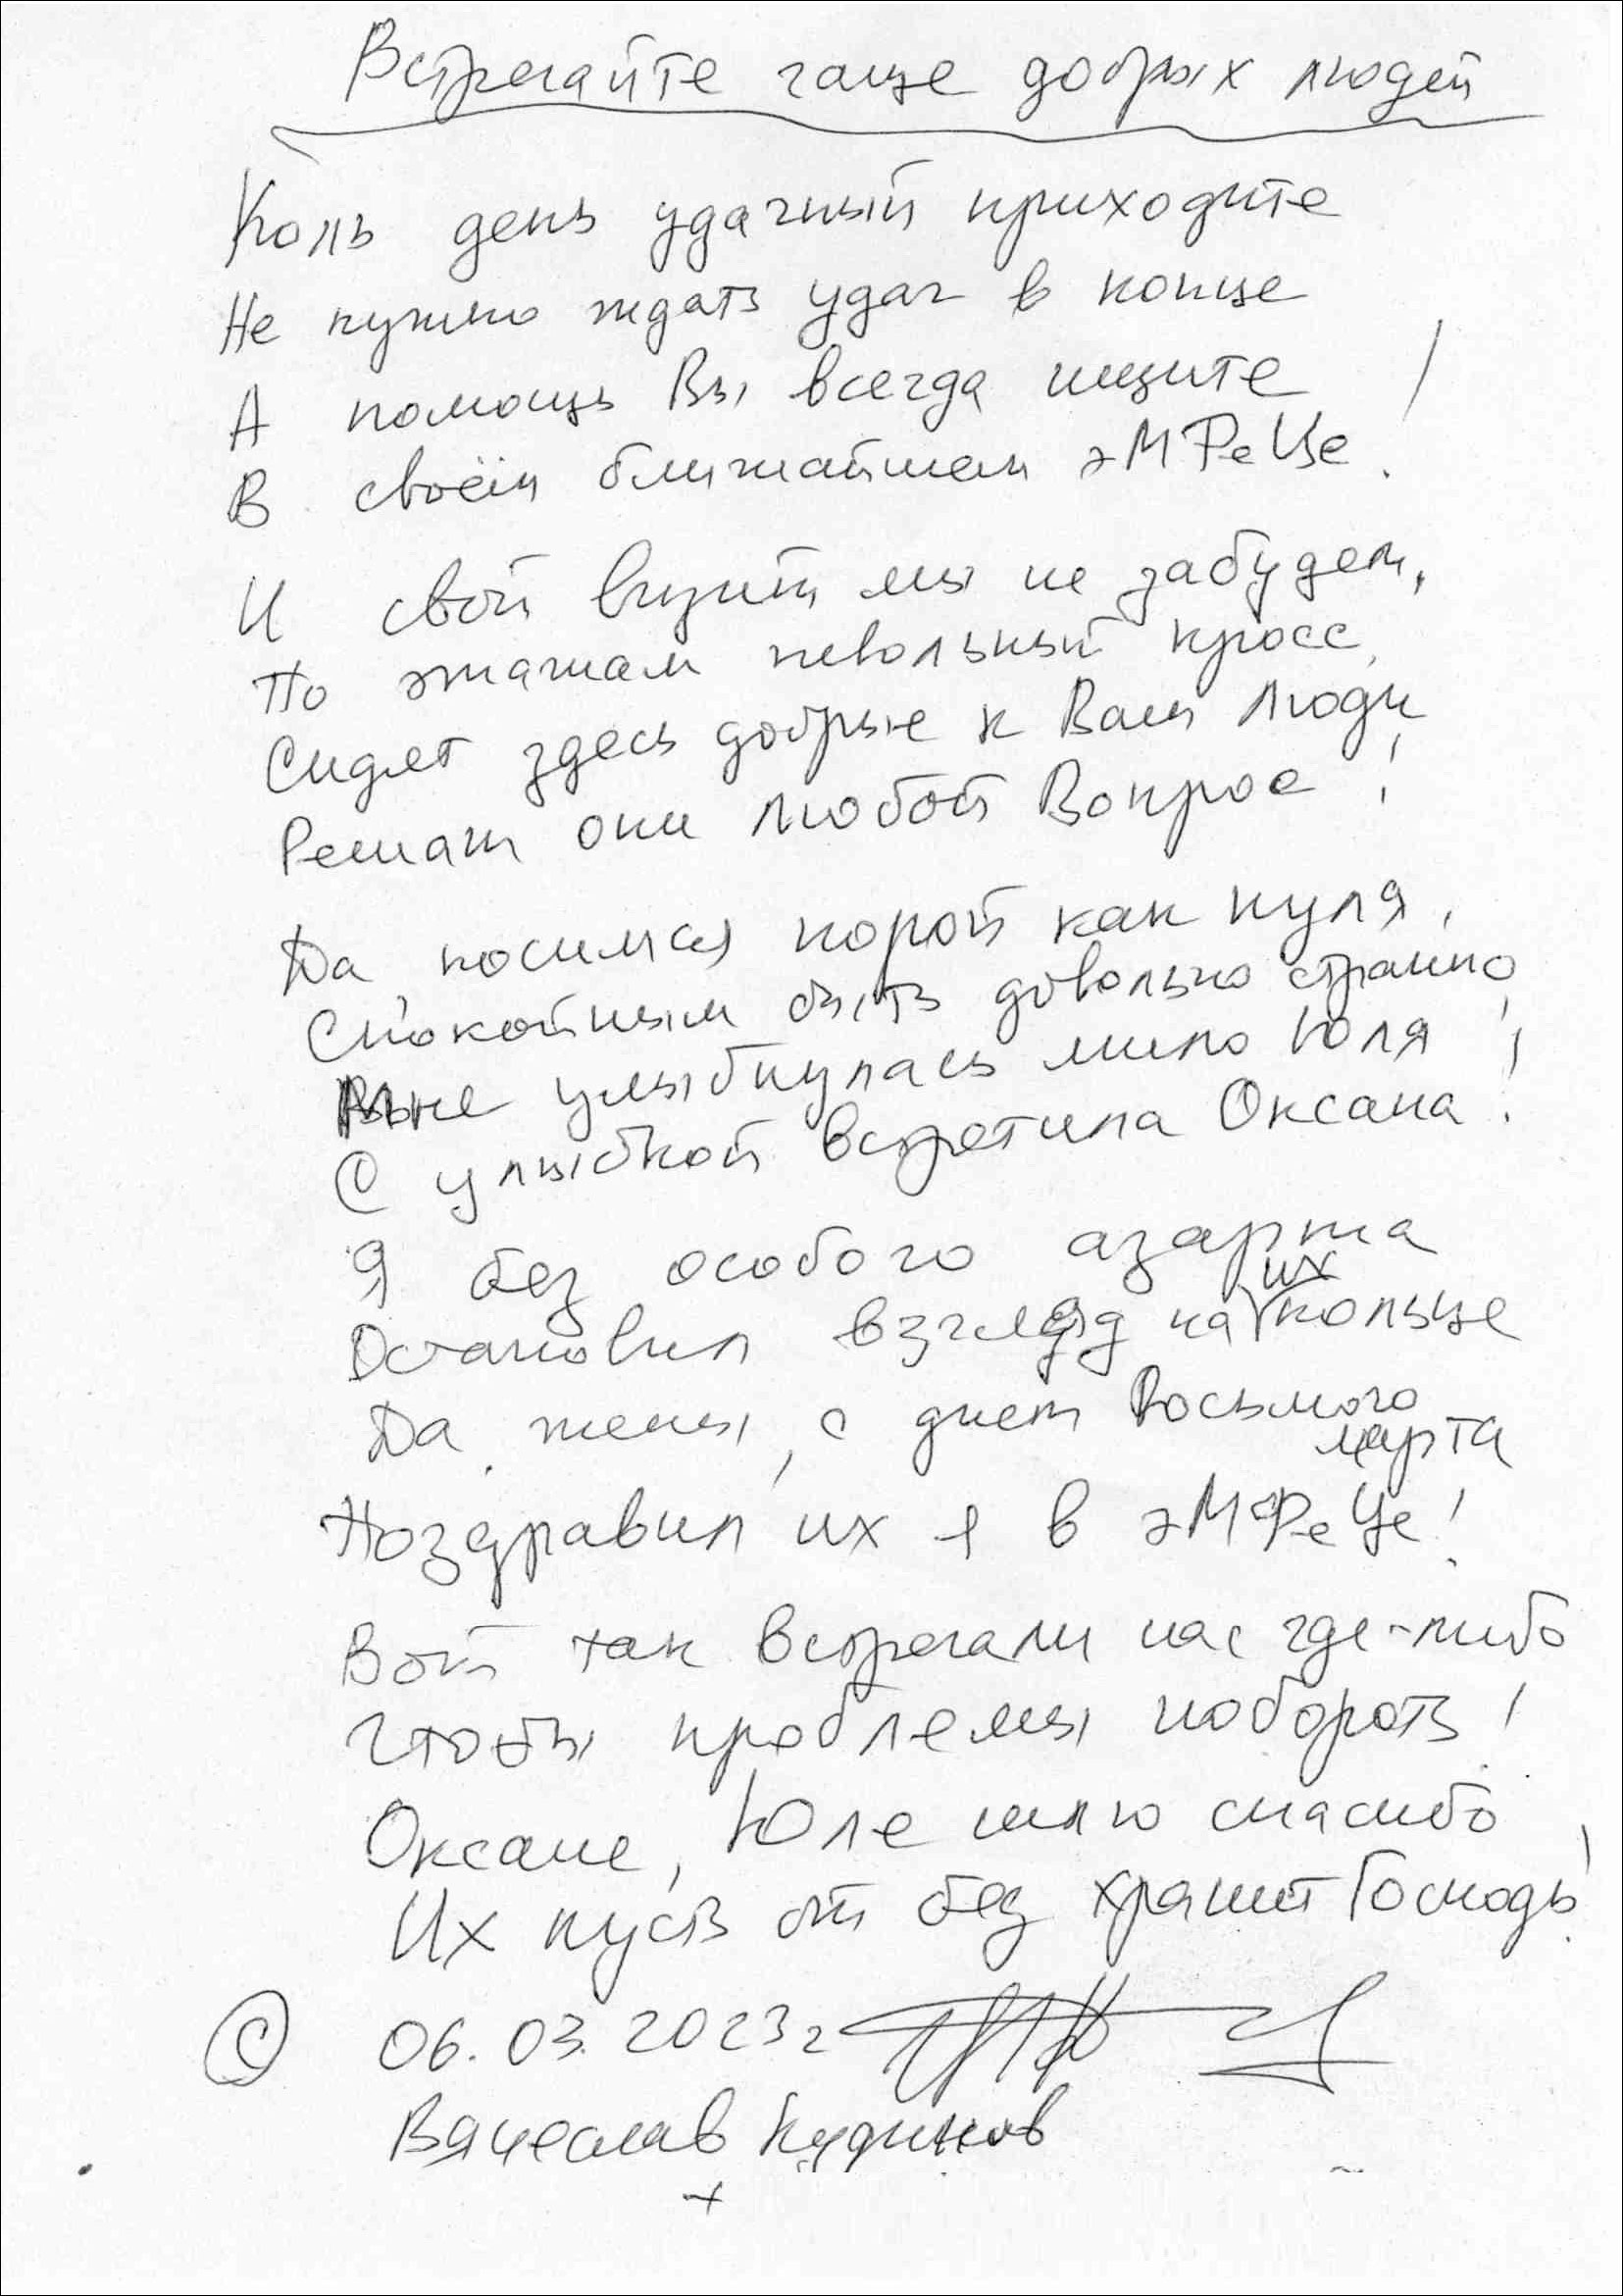 Встречайте чаще добрых людей
Коль день удачный приходите
Не нужно ждать удач в конце
А помощь Вы всегда ищите
В своём ближайшем эМФеЦе!
И свой визит мы не забудем,
По этажам невольный кросс,
Сидят здесь добрые к Вам люди
Решат они любой Вопрос!
Да, носимся порой как пуля,
Спокойным быть довольно странно,
Мне улыбнулась мило Юля!
С улыбкой встретила Оксана!
Я без особого азарта
Остановил взгляд на их кольце
Да, жены, с днем Восьмого
марта
Поздравил их я в эМФеЦе!
Вот так встречали нас где-либо
Чтобы проблемы побороть!
Оксане, Юле шлю спасибо
Их пусть от бед хранит Господь!
© 06.03.2023г
Вячеслав Кудинов